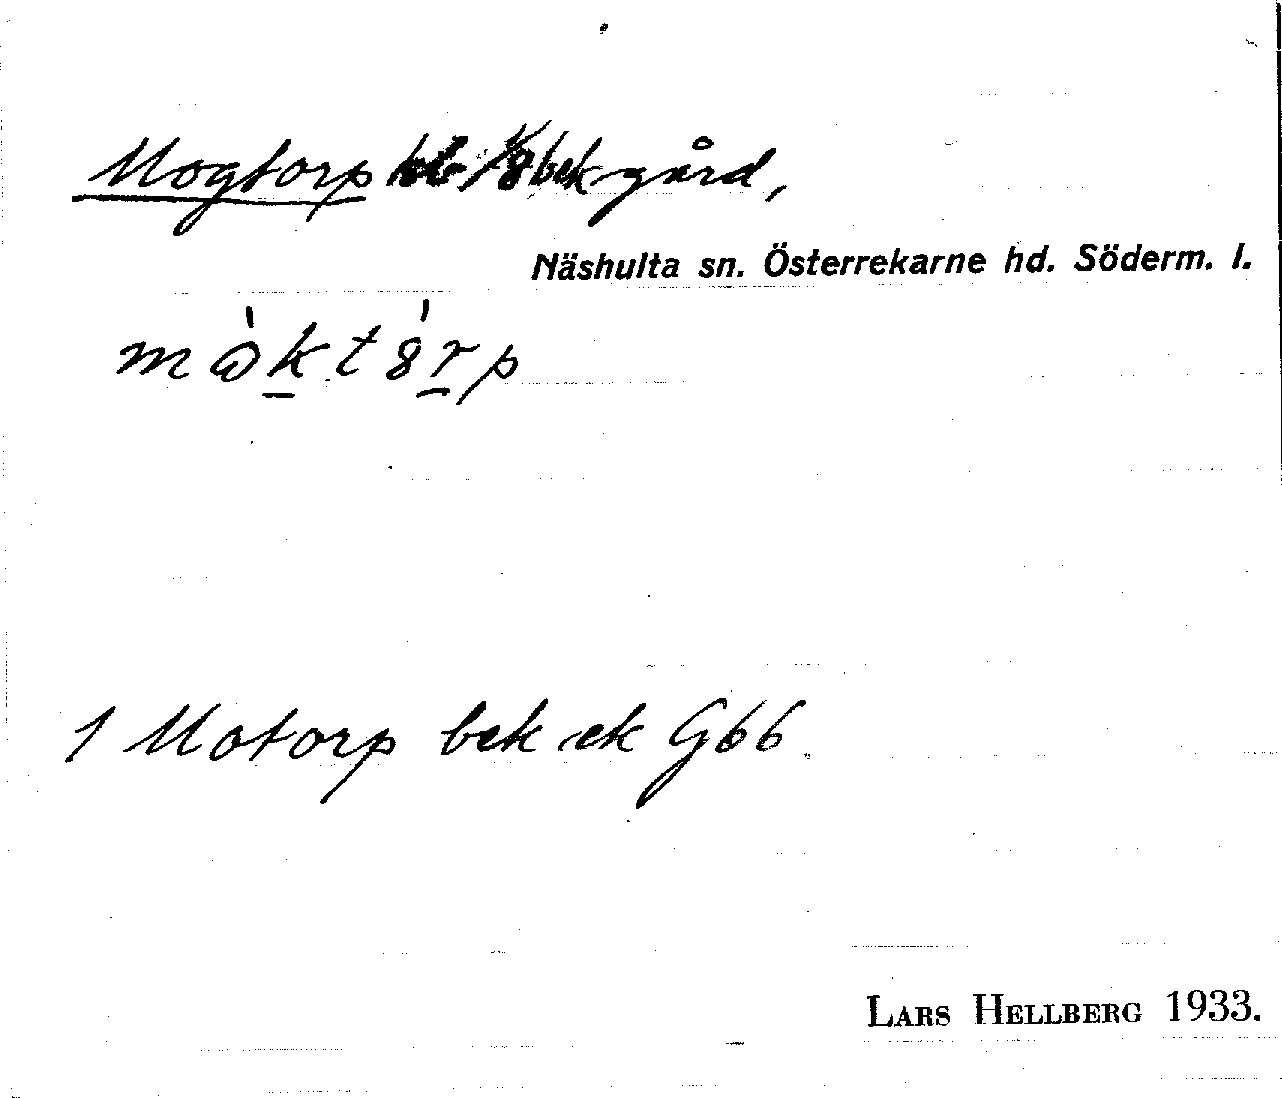 Mogtorp 1/8 bek gård,
Näshulta sn. Österrekarne hd. Söderm. l.
màkts̍rp
1 Motorp bek ek G66
LARS HELLBERG 1933.